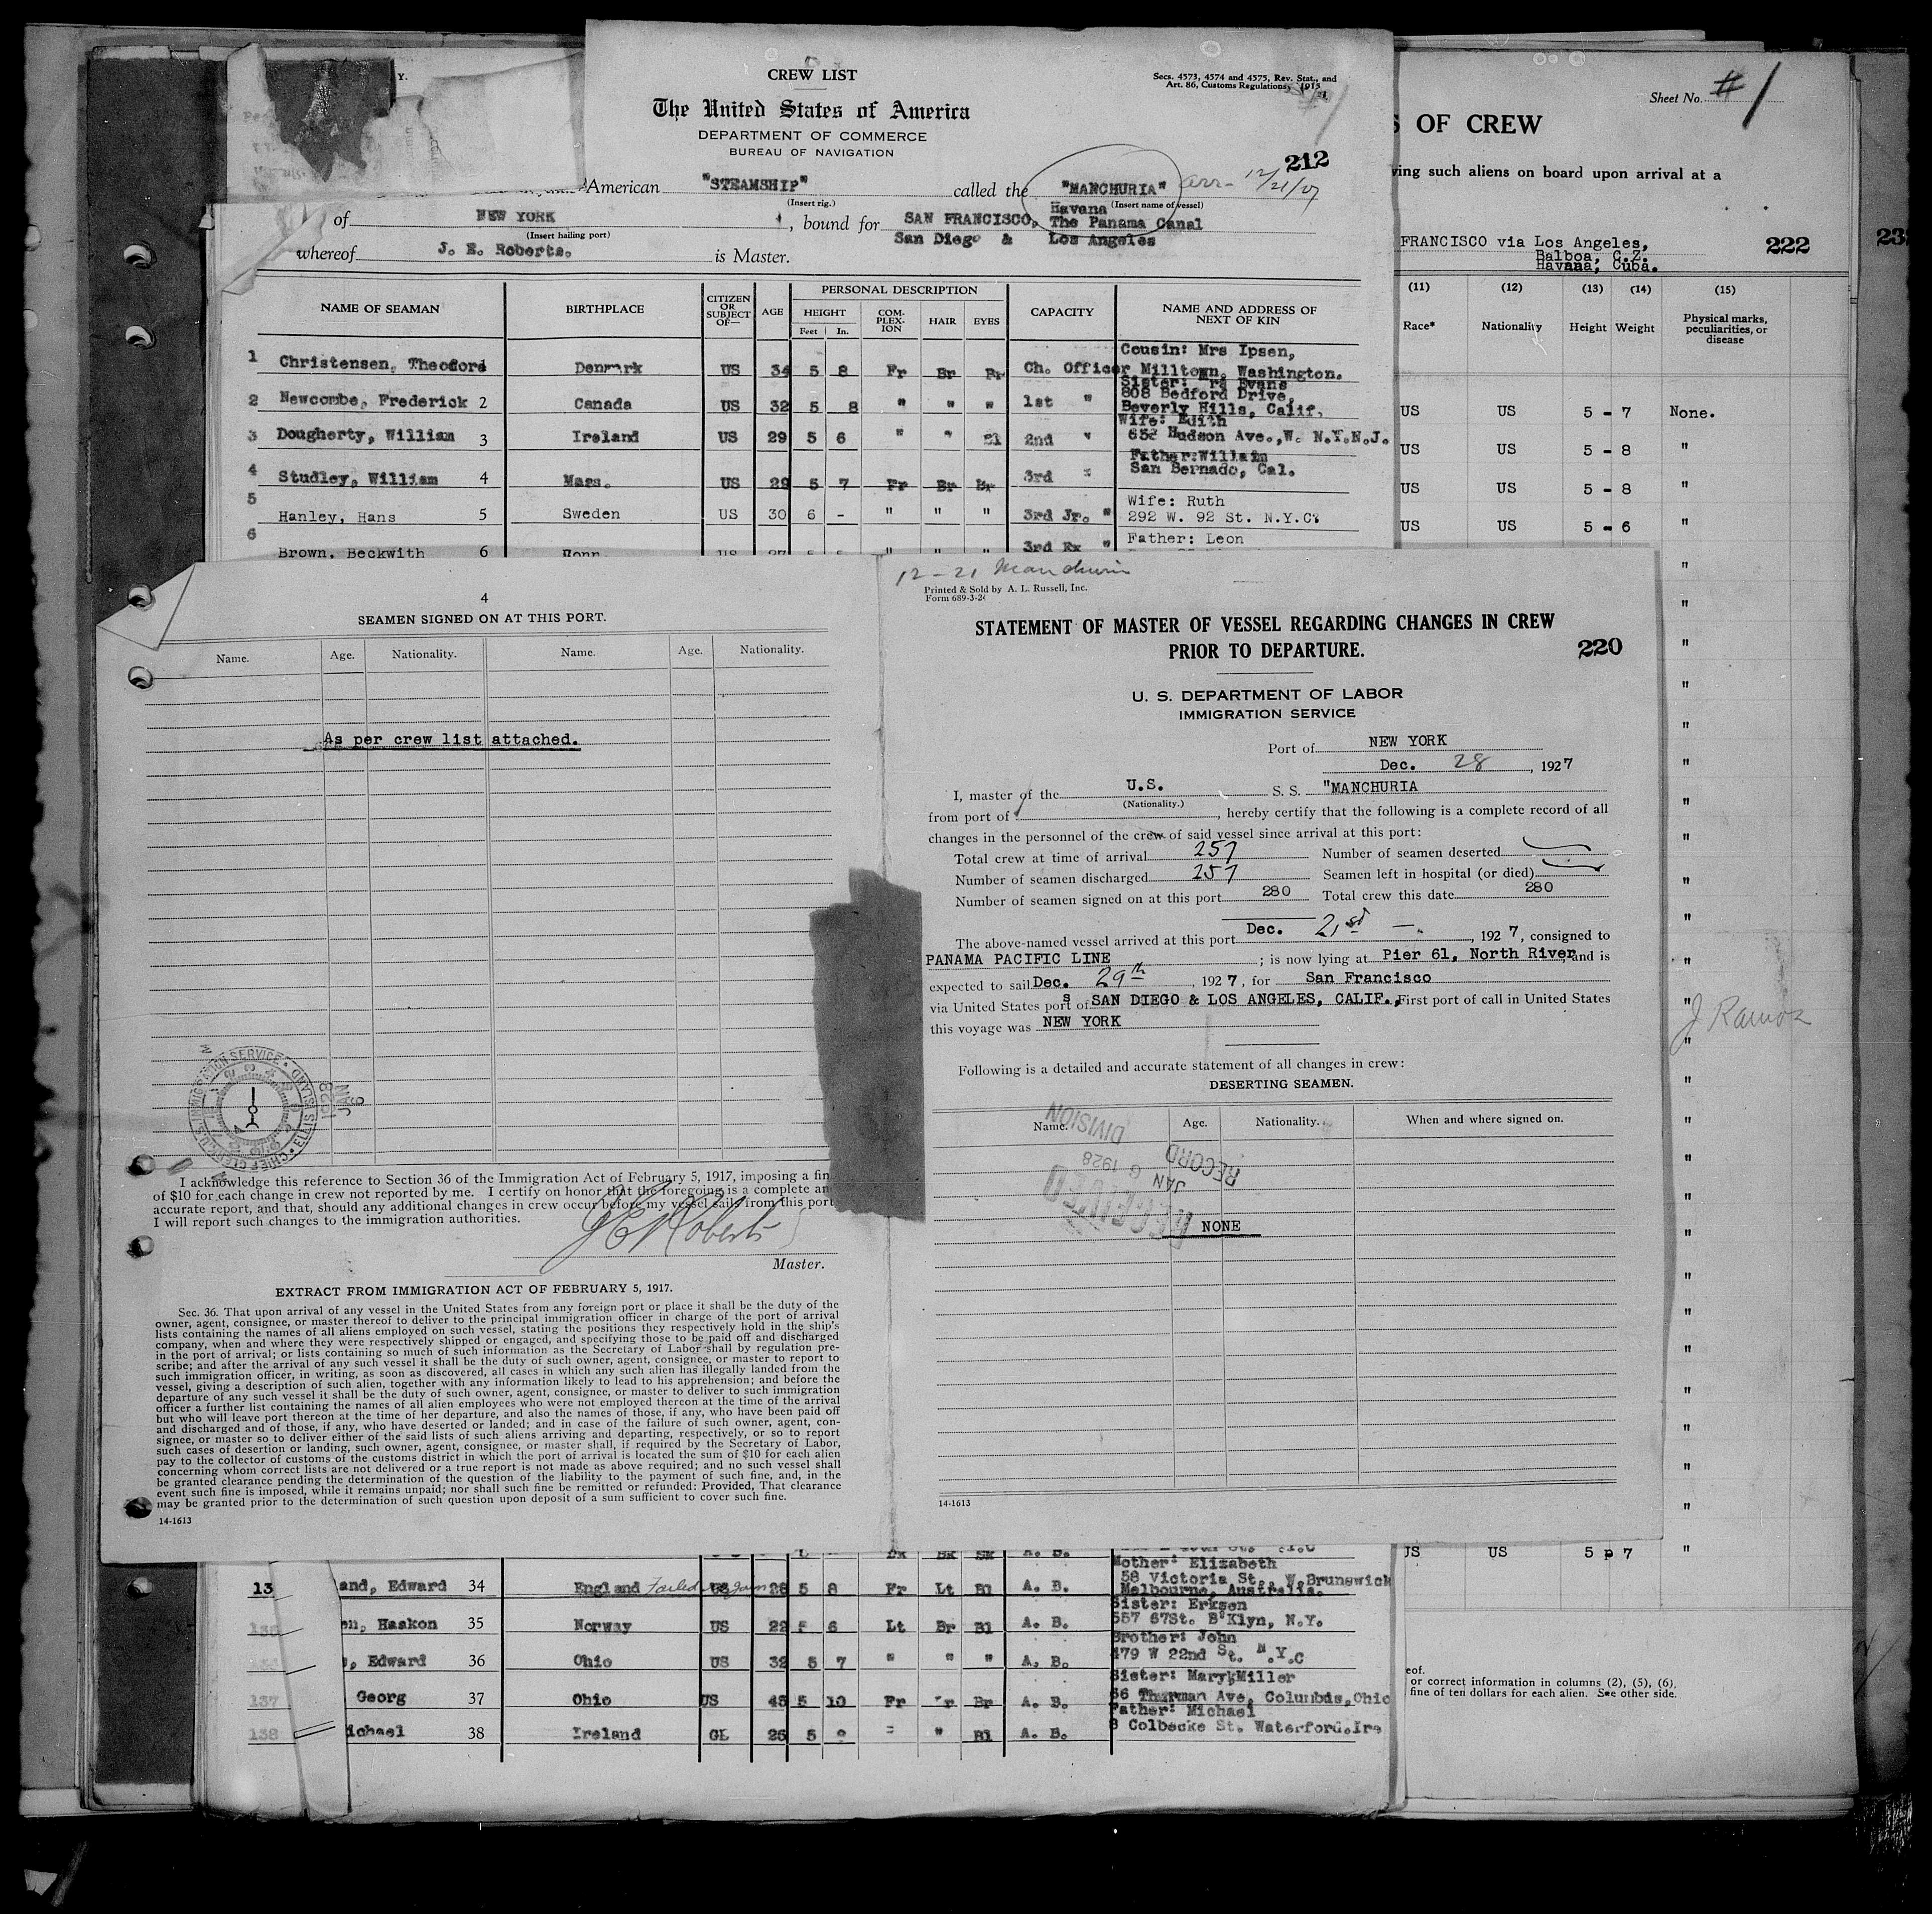 CREW LIST
Secs. 4573, 4574 and 4575, Rev. Stat., and
Art. 86, Customs Regulations, 1915
The United States of America
DEPARTMENT OF COMMERCE
BUREAU OF NAVIGATION
212
American "STEAMSHIP" called the "MANCHURIA" arr- 12/21/27
(Insert rig.) (Insert name of vessel)
of NEW YORK, bound for SAN FRANCISCO, Havana The Panama Canal
(Insert hailing port) San Diego & Los Angeles
whereof J. E. Roberts. is Master.
NAME OF SEAMAN BIRTHPLACE CITIZEN OR SUBJECT OF— AGE PERSONAL DESCRIPTION CAPACITY NAME AND ADDRESS OF NEXT OF KIN
HEIGHT COM-PLEX-ION HAIR EYES
Feet In.
1 Christensen, Theodord Denmark US 34 5 8 Fr Br Br Ch. Officer Cousin: Mrs Ipsen, Milltown, Washington.
2 Newcombe, Frederick 2 Canada US 32 5 8 " " " 1st " Sister: Evans 808 Bedford Drive, Beverly Hills, Calif.
3 Dougherty, William 3 Ireland US 29 5 6 " " Bl 2nd " Wife: Edith 652 Hudson Ave., W. N.Y.N.J.
4 Studley, William 4 Mass. US 29 5 7 Fr Br Br 3rd " Father: Willaim San Bernado, Cal.
5 Hanley, Hans 5 Sweden US 30 6 - " " " 3rd Jr. " Wife: Ruth 292 W. 92 St. N.Y.C.
6 Brown, Beckwith 6 3rd Ex " Father: Leon
Sheet No. # 1
OF CREW
such aliens on board upon arrival at a
FRANCISCO via Los Angeles,
Balboa, C.Z.
Havana, Cuba.
222
(11) (12) (13) (14) (15)
Race* Nationality Height Weight Physical marks, peculiarities, or disease
US US 5 - 7 None.
US US 5 - 8 "
US US 5 - 8 "
US US 5 - 6 "
J Ramos
US US 5 p 7 "
eof.
or correct information in columns (2), (5), (6),
fine of ten dollars for each alien. See other side.
4
SEAMEN SIGNED ON AT THIS PORT.
Name. Age. Nationality. Name. Age. Nationality.
As per crew list attached.
CHIEF CLERK U.S. IMMIGRATION SERVICE ELLIS ISLAND
JAN 6 1928
I acknowledge this reference to Section 36 of the Immigration Act of February 5, 1917, imposing a fin
of $10 for each change in crew not reported by me. I certify on honor that the foregoing is a complete an
accurate report, and that, should any additional changes in crew occur before my vessel sails from this port
I will report such changes to the immigration authorities.
J E Roberts
Master.
EXTRACT FROM IMMIGRATION ACT OF FEBRUARY 5, 1917.
Sec. 36. That upon arrival of any vessel in the United States from any foreign port or place it shall be the duty of the
owner, agent, consignee, or master thereof to deliver to the principal immigration officer in charge of the port of arrival
lists containing the names of all aliens employed on such vessel, stating the positions they respectively hold in the ship's
company, when and where they were respectively shipped or engaged, and specifying those to be paid off and discharged
in the port of arrival; or lists containing so much of such information as the Secretary of Labor shall by regulation pre-
scribe; and after the arrival of any such vessel it shall be the duty of such owner, agent, consignee, or master to report to
such immigration officer, in writing, as soon as discovered, all cases in which any such alien has illegally landed from the
vessel, giving a description of such alien, together with any information likely to lead to his apprehension; and before the
departure of any such vessel it shall be the duty of such owner, agent, consignee, or master to deliver to such immigration
officer a further list containing the names of all alien employees who were not employed thereon at the time of the arrival
but who will leave port thereon at the time of her departure, and also the names of those, if any, who have been paid off
and discharged and of those, if any, who have deserted or landed; and in case of the failure of such owner, agent, con-
signee, or master so to deliver either of the said lists of such aliens arriving and departing, respectively, or so to report
such cases of desertion or landing, such owner, agent, consignee, or master shall, if required by the Secretary of Labor,
pay to the collector of customs of the customs district in which the port of arrival is located the sum of $10 for each alien
concerning whom correct lists are not delivered or a true report is not made as above required; and no such vessel shall
be granted clearance pending the determination of the question of the liability to the payment of such fine, and, in the
event such fine is imposed, while it remains unpaid; nor shall such fine be remitted or refunded: Provided, That clearance
may be granted prior to the determination of such question upon deposit of a sum sufficient to cover such fine.
14-1613
12-21 Manchuria
Printed & Sold by A. L. Russell, Inc.
Form 689-3-26
STATEMENT OF MASTER OF VESSEL REGARDING CHANGES IN CREW
PRIOR TO DEPARTURE.
220
U. S. DEPARTMENT OF LABOR
IMMIGRATION SERVICE
Port of NEW YORK
Dec. 28, 1927
I, master of the U.S. S. S. "MANCHURIA
(Nationality.)
from port of , hereby certify that the following is a complete record of all
changes in the personnel of the crew of said vessel since arrival at this port:
Total crew at time of arrival 257 Number of seamen deserted
Number of seamen discharged 257 Seamen left in hospital (or died)
Number of seamen signed on at this port 280 Total crew this date 280
The above-named vessel arrived at this port Dec. 21st —, 1927, consigned to
PANAMA PACIFIC LINE ; is now lying at Pier 61, North River and is
expected to sail Dec. 29th, 1927, for San Francisco
via United States ports of SAN DIEGO & LOS ANGELES, CALIF., First port of call in United States
this voyage was NEW YORK
Following is a detailed and accurate statement of all changes in crew:
DESERTING SEAMEN.
Name. Age. Nationality. When and where signed on.
RECEIVED
JAN 6 1928
RECORD DIVISION
NONE
14-1613
13 and, Edward 34 England Failed US 28 5 8 Fr Lt Bl A. B. Mother: Elizabeth 58 Victoria St., W. Brunswick Melbourne, Australia.
en, Haakon 35 Norway US 22 5 6 Lt Br Bl A. B. Sister: Erksen 557 67St. B'Klyn, N.Y.
, Edward 36 Ohio US 32 5 7 " " " A. B. Brother: John 479 W 22nd St. N.Y.C
137 Georg 37 Ohio US 45 5 10 Fr Br Br A. B. Sister: Mary Miller 66 Thurman Ave, Columbus, Ohio
138 ichael 38 Ireland GL 25 5 " " Bl A. B. Father: Michael 8 Colbecke St. Waterford. Ire